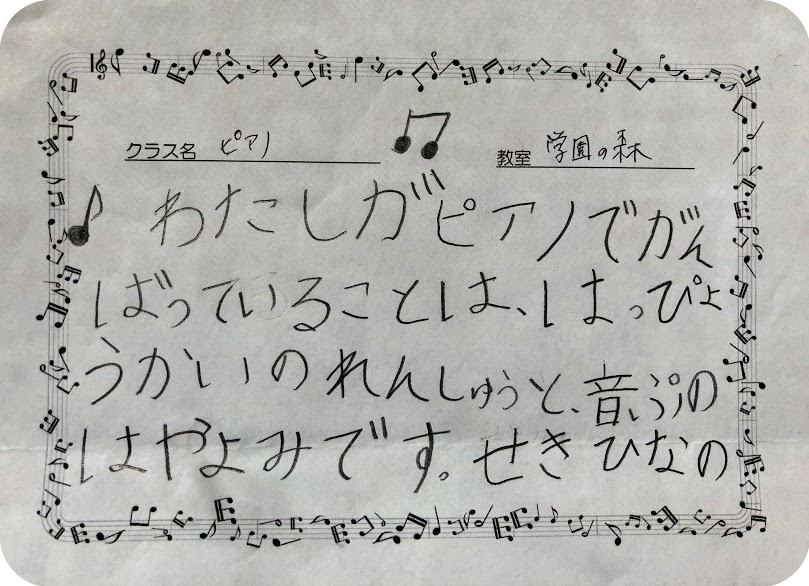 クラス名 ピアノ
教室 学園の森
わたしがピアノでがん
ばっていることは、はっぴょ
うかいのれんしゅうと、音ぷの
はやよみです。せきひなの